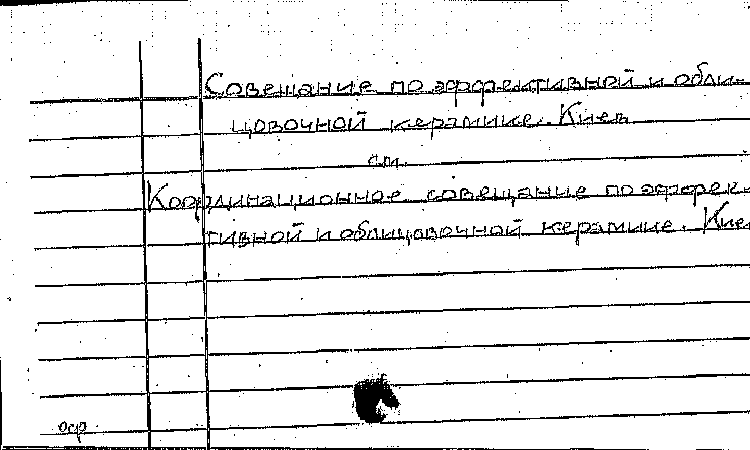 Совещание по эффективной и обли-
цовочной керамике. Киев
см.
Координационное совещание по эффек-
тивной и облицовочной керамике. Кие
оср